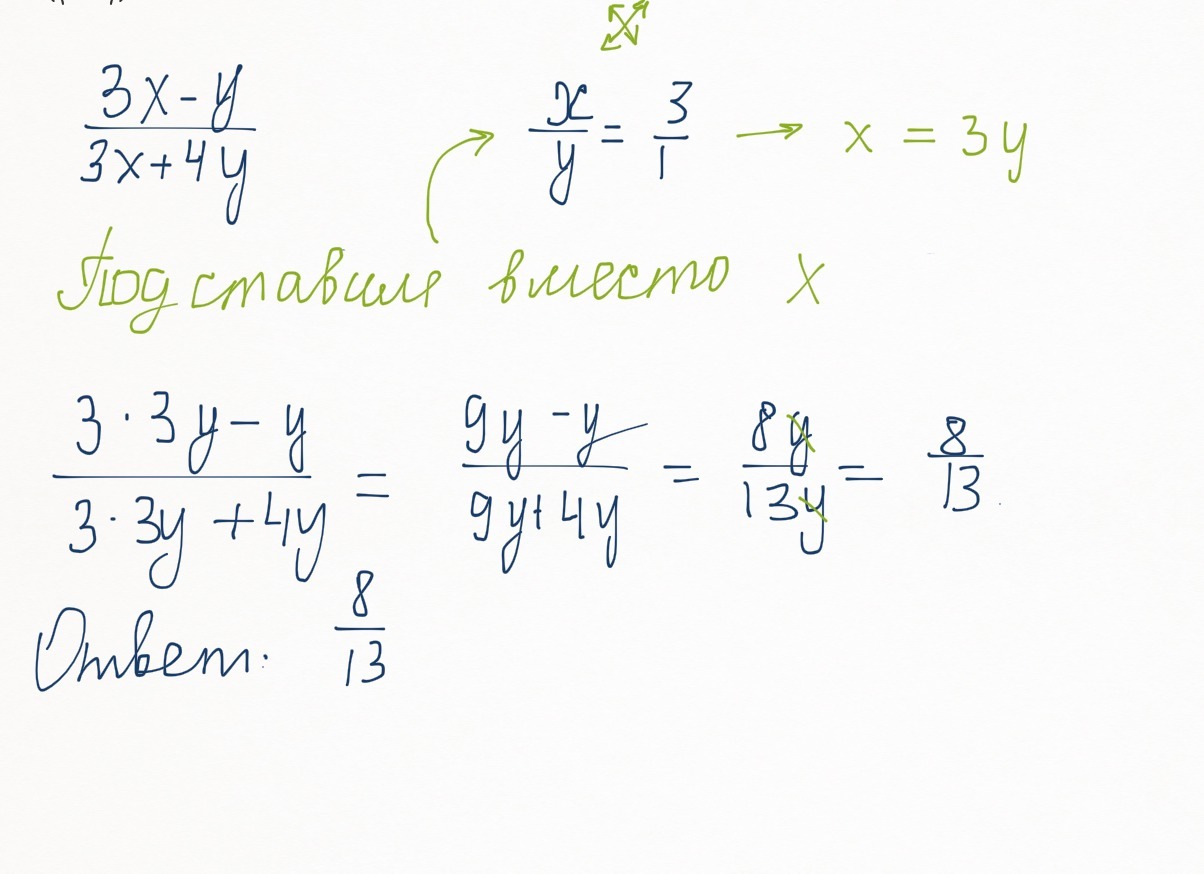 (3x-y)/(3x+4y) x/y = 3/1 → x = 3y
Подставим вместо x
(3·3y-y)/(3·3y+4y) = (9y-y)/(9y+4y) = 8y/13y = 8/13
Ответ: 8/13